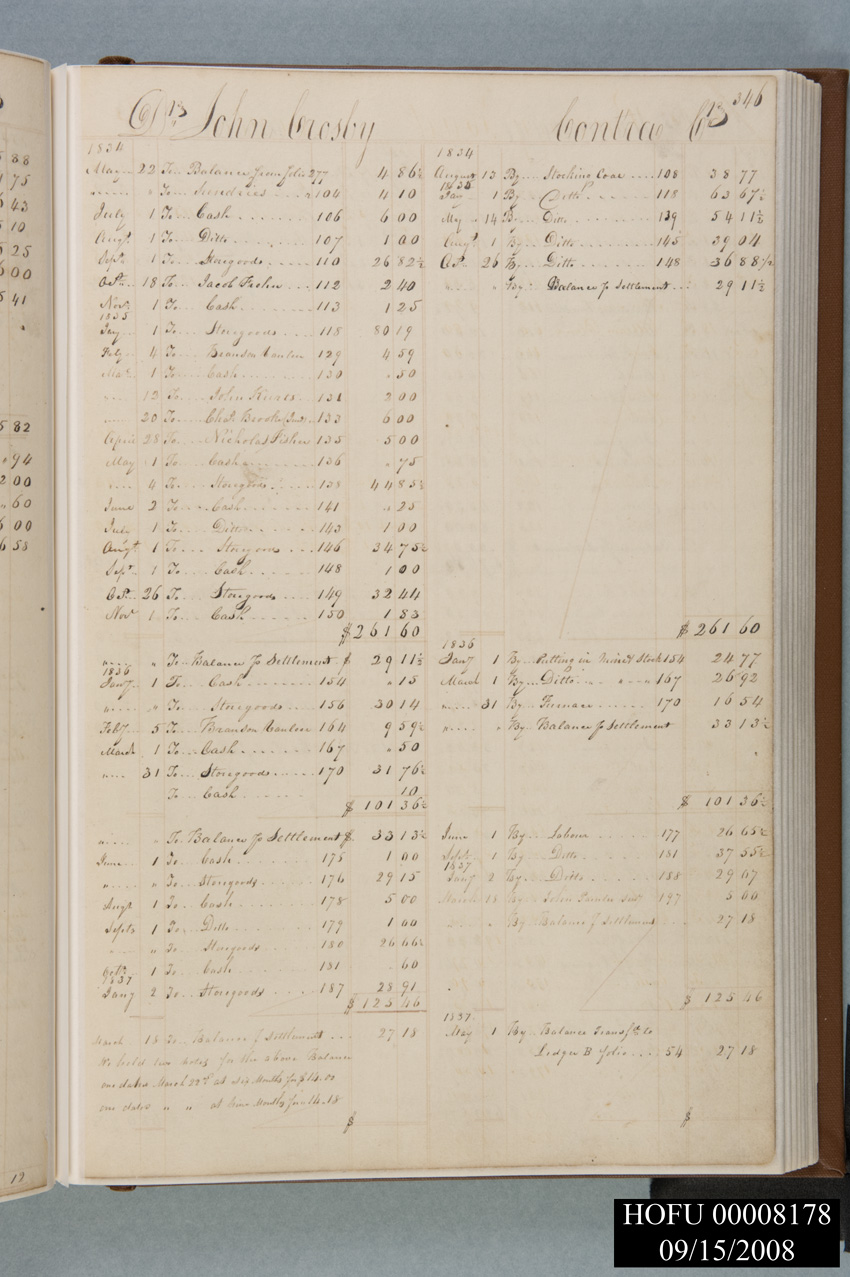 346
Dr John Crosby Contra Cr
1834
May 22 To Balance from folio 277 4 86½
" " To Sundries 104 4 10
July 1 To Cash 106 6 00
Augt 1 To Ditto 107 1 00
Sept 1 To Storegoods 110 26 82½
Octr 18 To Jacob 112 2 40
Novr 1 To Cash 113 1 25
1835
Jany 1 To Storegoods 118 80 19
Feby 4 To Branson 129 4 59
Mar 1 To Cash 130 " 50
" 12 To John 131 2 00
" 20 To Chas Brooke 133 6 00
April 28 To Nicholas Fisher 135 5 00
May 1 To Cash 136 " 75
" 4 To Storegoods 138 44 85½
June 2 To Cash 141 " 25
July 1 To Ditto 143 1 00
Augt 1 To Storegoods 146 34 75½
Sept 1 To Cash 148 1 00
Oct 26 To Storegoods 149 32 44
Novr 1 To Cash 150 1 83
$ 261 60
" " To Balance p Settlement $ 29 11½
1836
Jany 1 To Cash 154 " 15
" " To Storegoods 156 30 14
Feby 5 To Branson 164 9 59½
March 1 To Cash 167 " 50
" 31 To Storegoods 170 31 76½
To Cash 10
$ 101 36½
" " To Balance p Settlement $ 33 13½
June 1 To Cash 175 1 00
" " To Storegoods 176 29 15
Augt 1 To Cash 178 5 00
Septr 1 To Ditto 179 1 00
" " To Storegoods 180 26 66½
Octr 1 To Cash 181 60
1837
Jany 2 To Storegoods 187 28 91
$ 125 46
March 18 To Balance p Settlement 27 18
We hold two notes for the above Balance
one dated March 22d at six Months for $14.00
one dated " " at Months for 14.18
$
1834
August 13 By Stocking Coal 108 38 77
1835
Jany 1 By Ditto 118 63 67½
May 14 By Ditto 139 54 11½
Augt 1 By Ditto 145 39 04
Oct 26 By Ditto 148 36 88½
" " By Balance p Settlement 29 11½
$ 261 60
1836
Jany 1 By Putting in Mined Stock 154 24 77
March 1 By Ditto " " 167 26 92
" 31 By Furnace 170 16 54
" " By Balance p Settlement 33 13½
"
$ 101 36½
June 1 By Labour 177 26 65½
Septr 1 By Ditto 181 37 55½
1837
Jany 2 By Ditto 188 29 07
March 18 By John 197 5 00
" " By Balance p Settlement 27 18
$ 125 46
1837
May 1 By Balance Transfd to
Ledger B folio 54 27 18
$
88
75
43
10
25
00
41
82
94
200
60
00
58
12
HOFU 00008178
09/15/2008